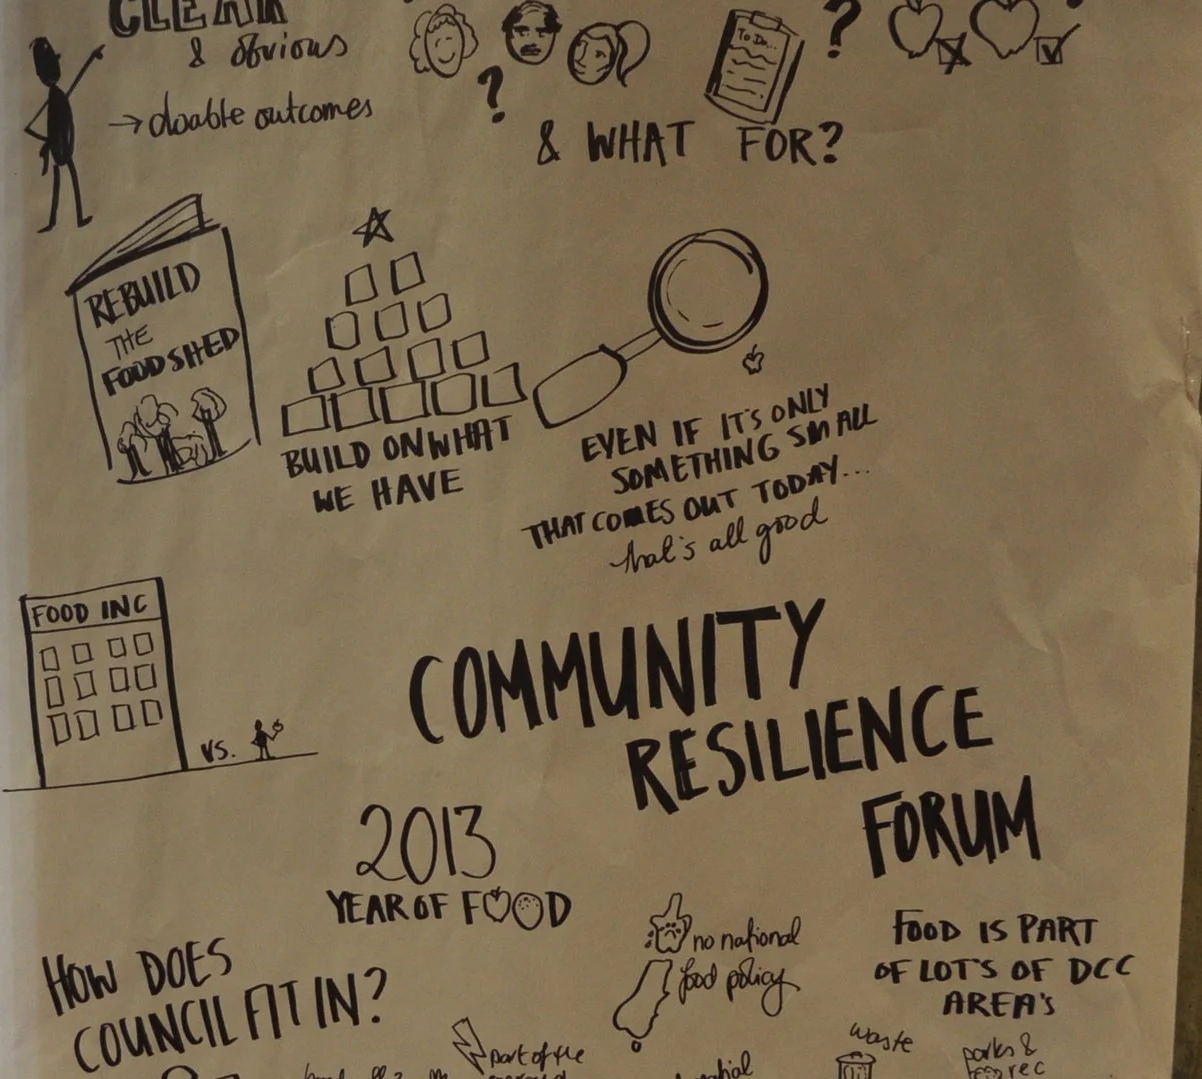 CLEAR
& obvious
→ doable outcomes
To Do...
?
?
& WHAT FOR?
REBUILD
THE
FOODSHED
BUILD ON WHAT
WE HAVE
EVEN IF IT'S ONLY
SOMETHING SMALL
THAT COMES OUT TODAY...
that's all good
FOOD INC
VS.
COMMUNITY
RESILIENCE
FORUM
2013
YEAR OF FOOD
no national
food policy
FOOD IS PART
OF LOT'S OF DCC
AREA'S
HOW DOES
COUNCIL FIT IN?
part of the
waste
parks &
rec